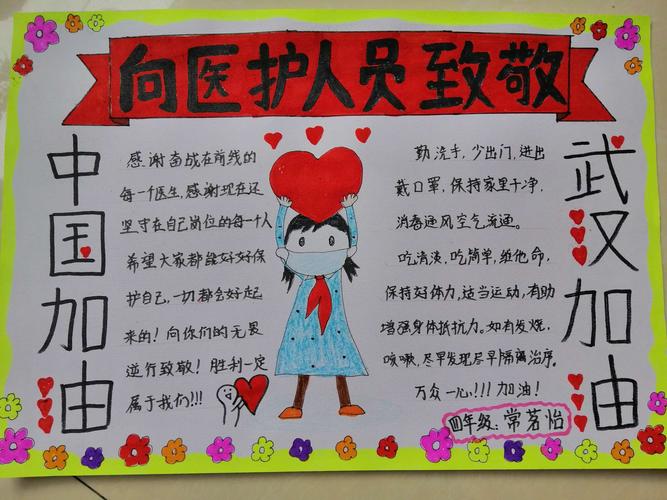 向医护人员致敬
中国加油
感谢奋战在前线的
每一个医生,感谢现在还
坚守在自己岗位的每一个人
希望大家都能好好保
护自己,一切都会好起
来的!向你们的无畏
逆行致敬!胜利一定
属于我们!!!
勤洗手,少出门,进出
戴口罩,保持家里干净,
消毒通风空气流通。
吃清淡,吃简单,维他命,
保持好体力,适当运动,有助
增强身体抵抗力。如有发烧,
咳嗽,尽早发现尽早隔离治疗。
万众一心!!!加油!
四年级:常茗怡
武汉加油